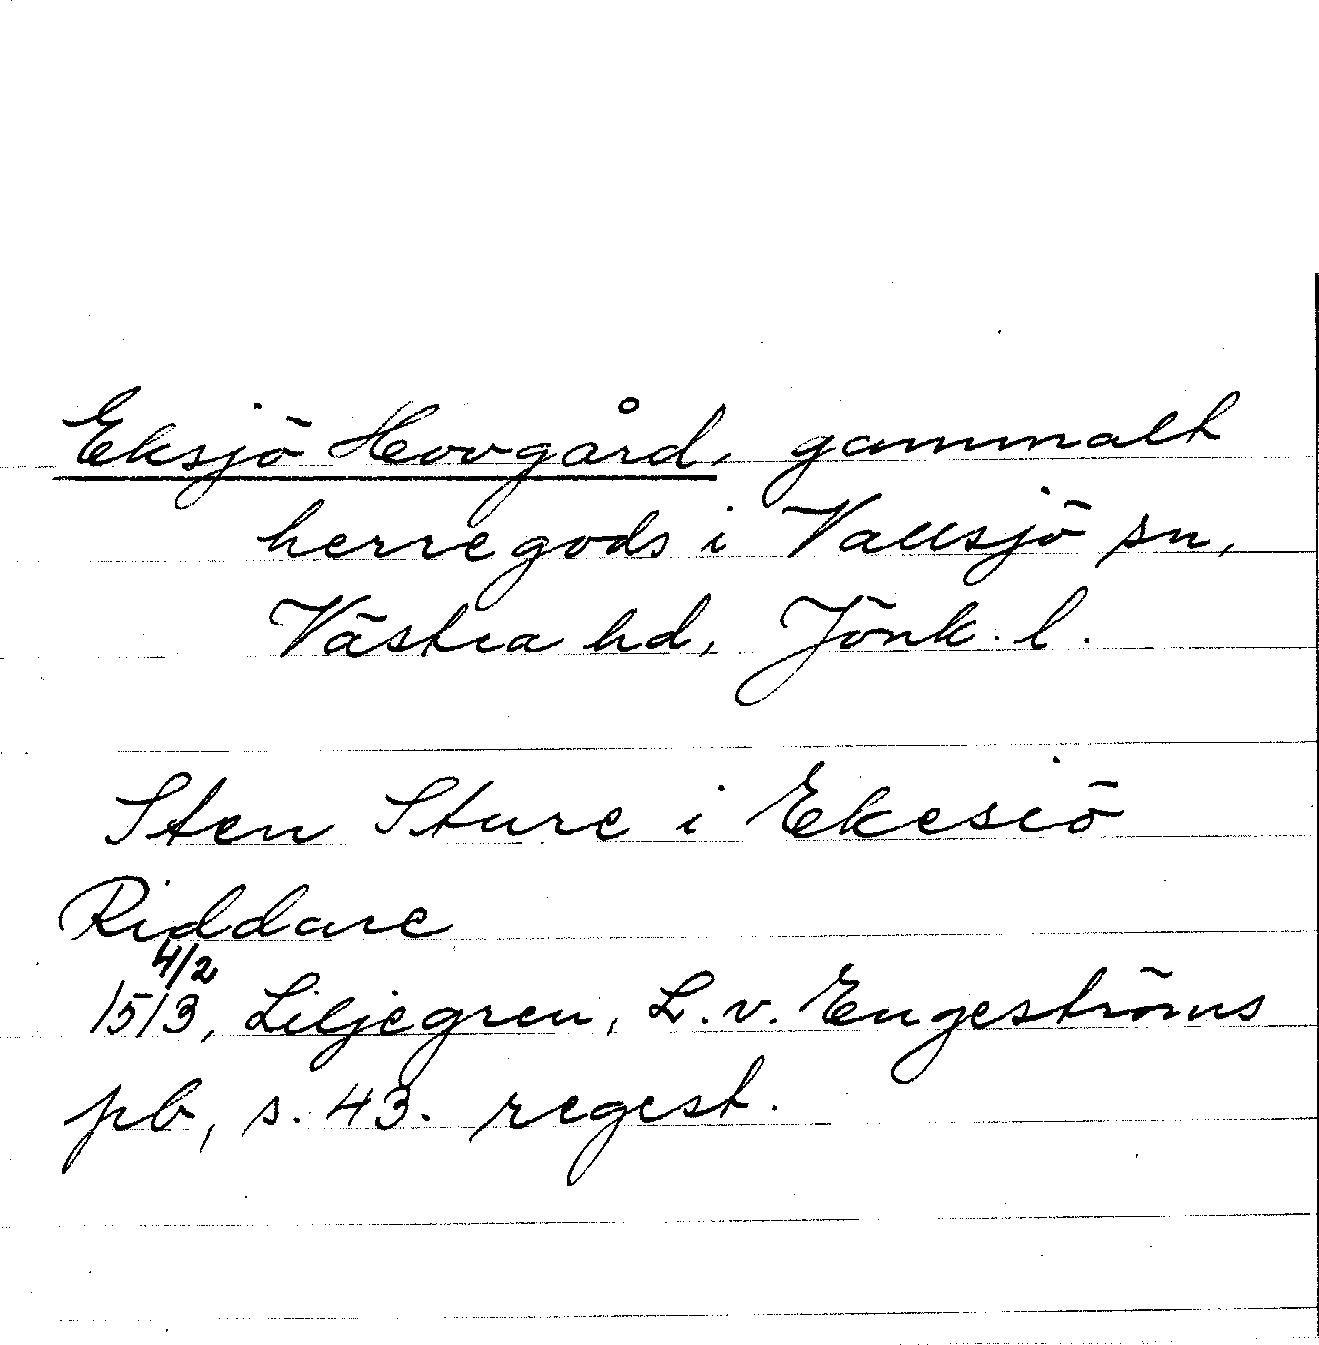 Eksjö Hovgård, gammalt
herregods i Vallsjö sn,
Västra hd, Jönk. l.
Sten Sture i Ekesiö
Riddare
4/2
1513, Liljegren, L. v. Engeströms
pb, s. 43. regest.